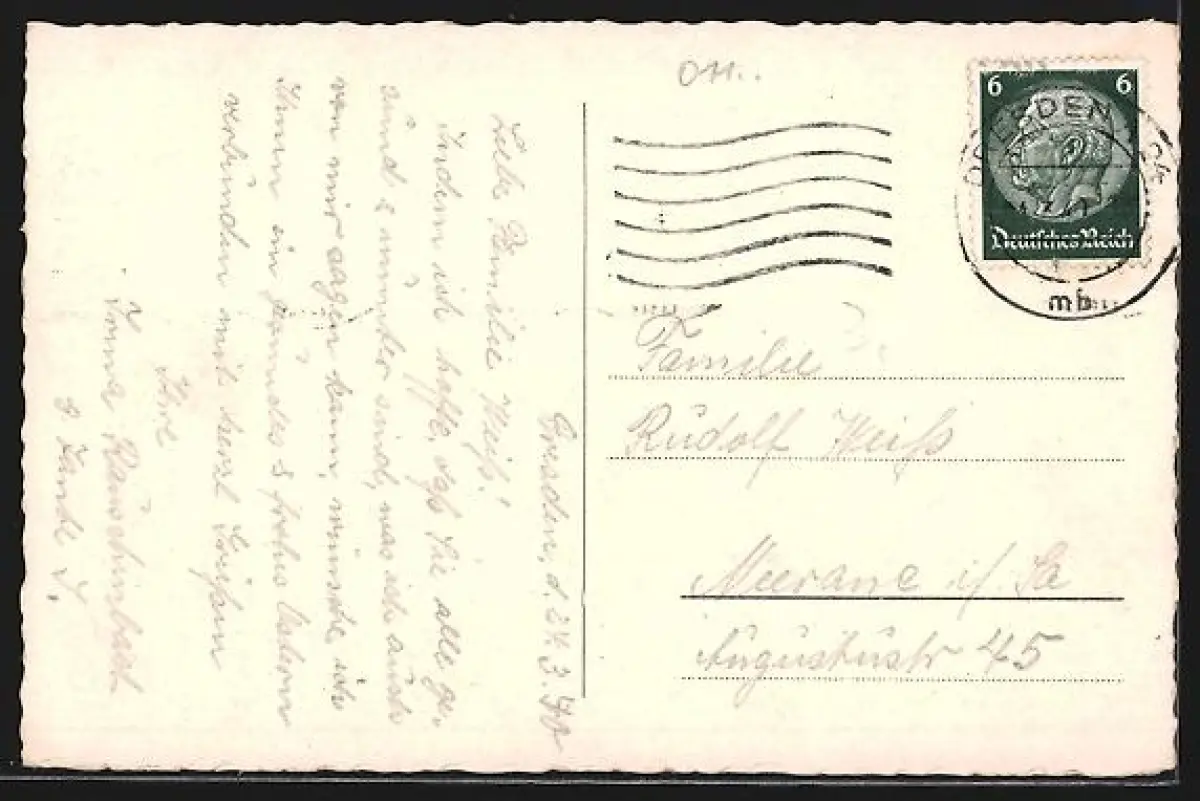 Dresden, d. 24.3.40
Liebe Familie Weiß!
Indem ich hoffe, daß Sie alle ge-
sund & munter sind, was ich auch
von mir sagen kann, wünsche ich
Ihnen ein gesundes & frohes Ostern
verbunden mit herzl. Grüßen
Ihre
Irma
& Tante
Ott..
6 6
DRESDEN
Deutsches Reich
mb
Familie
Rudolf Weiß
Meerane i/ Sa
Augustusstr 45